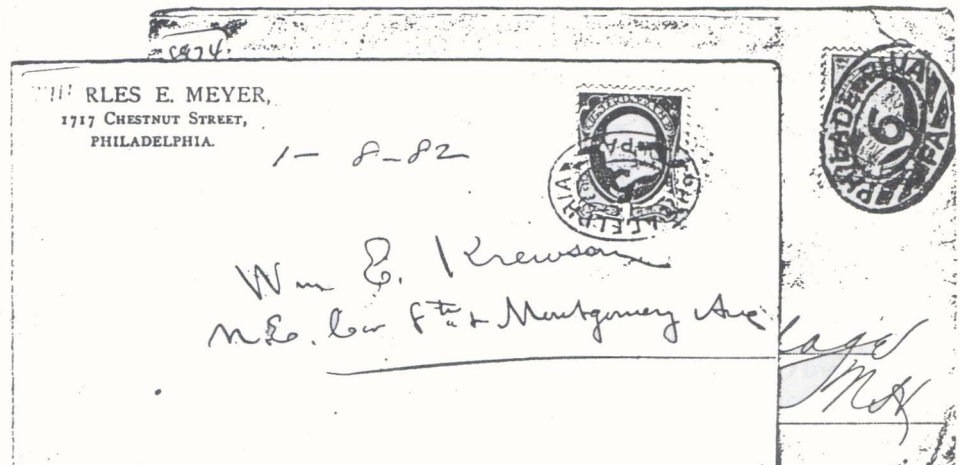 1874.
RLES E. MEYER,
1717 CHESTNUT STREET,
PHILADELPHIA.
1-8-82
U.S. POSTAGE
PHILADELPHIA
PA
Wm E. Krewson
N.E. Cor 8th & Montgomery Ave
PHILADELPHIA PA
6